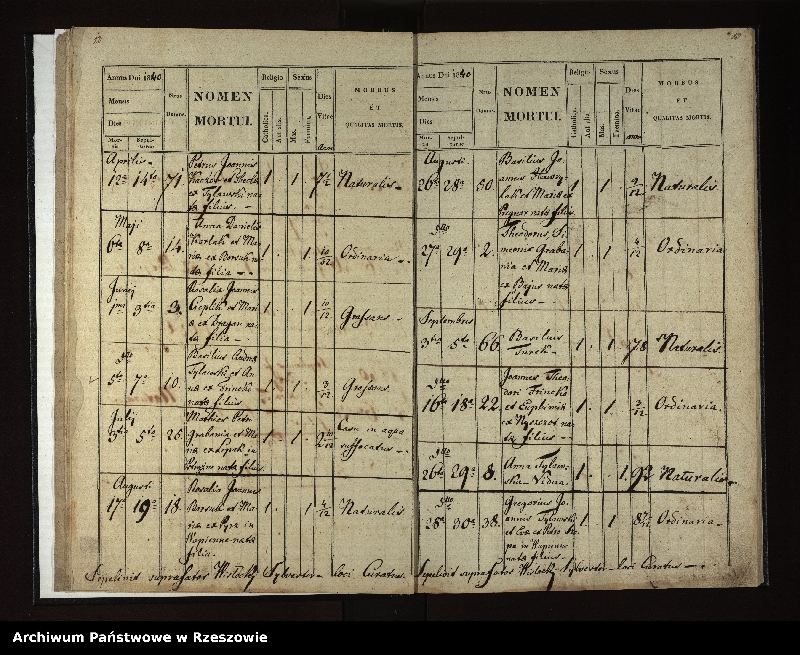 12
Annus Dni 1840
Mensis
Dies
Mortis
Sepulturae
Nrus Domus.
NOMEN
MORTUI.
Religio
Catholica.
Aut alia.
Sexus
Mas.
Femina.
Dies
Vitae
MORBUS
ET
QUALITAS MORTIS.
Aprilis
12a 14ta 71.
Petrus Joannis
Tylawski na-
tae filius.
1 1
Naturalis
Maji
6ta 8a 14.
Anna Danielis
Karlak et Ma-
riae ex Borsuk na-
tae filia
1. 1.
10/12
Ordinaria
Junij
1ma 3tia 3.
Rosalia Joannis
et Mari
ae ex Dragan na-
tae filia
1. 1
10/12
Grassans.
dtto
5ta 7a 10.
Basilius
Tylawski et An
nae ex Trincka
natae filius
1 1
3/12
Grassans.
Julij
3tia 5ta 26.
Mathias Petri
Grabania et Ma
riae ex
natae filius
1. 1.
Casu in aqua
suffocatus
Augusti
17a 19a 18.
Rosalia Joannis
Borsuk et Ma
riae ex Pyrz in
Wapienne natae
filia
1. 1.
4/12
Naturalis
Sepelivit suprafatus Wislocky Sylvester loci Curatus.
Annus Dni 1840
Mensis
Dies
Mortis
Sepulturae
Nrus Domus.
NOMEN
MORTUI.
Religio
Catholica.
Aut alia.
Sexus
Mas.
Femina.
Dies
Vitae
MORBUS
ET
QUALITAS MORTIS.
Augusti
26ta 28a 50.
Basilius Jo-
annis
et Mariae ex
natae filius
1 1
9/12
Naturalis
dtto
27a 29a 2.
Theodorus, Si-
meonis Graba-
nia et Mariae
ex Bajus natae
filius
1. 1
4/12
Ordinaria
Septembris
3tia 5ta 66.
Basilius
Turek
1. 1. 78.
Naturalis.
dtto
16ta 18a 22.
Joannes Theo-
dori Trincka
et Euphemiae
ex na-
tae filius
1. 1.
3/12
Ordinaria.
dtto
26ta 29a 8.
Anna Tylaw-
ska Vidua.
1. 1. 92
Naturalis
dtto
28a 30a 38.
Gregorius Jo-
annis Tylawski
et Evae ex Petro
in Wapienne
natae filius
1. 1
Ordinaria
Sepelivit suprafatus Wislocky Sylvester loci Curatus
Archiwum Państwowe w Rzeszowie